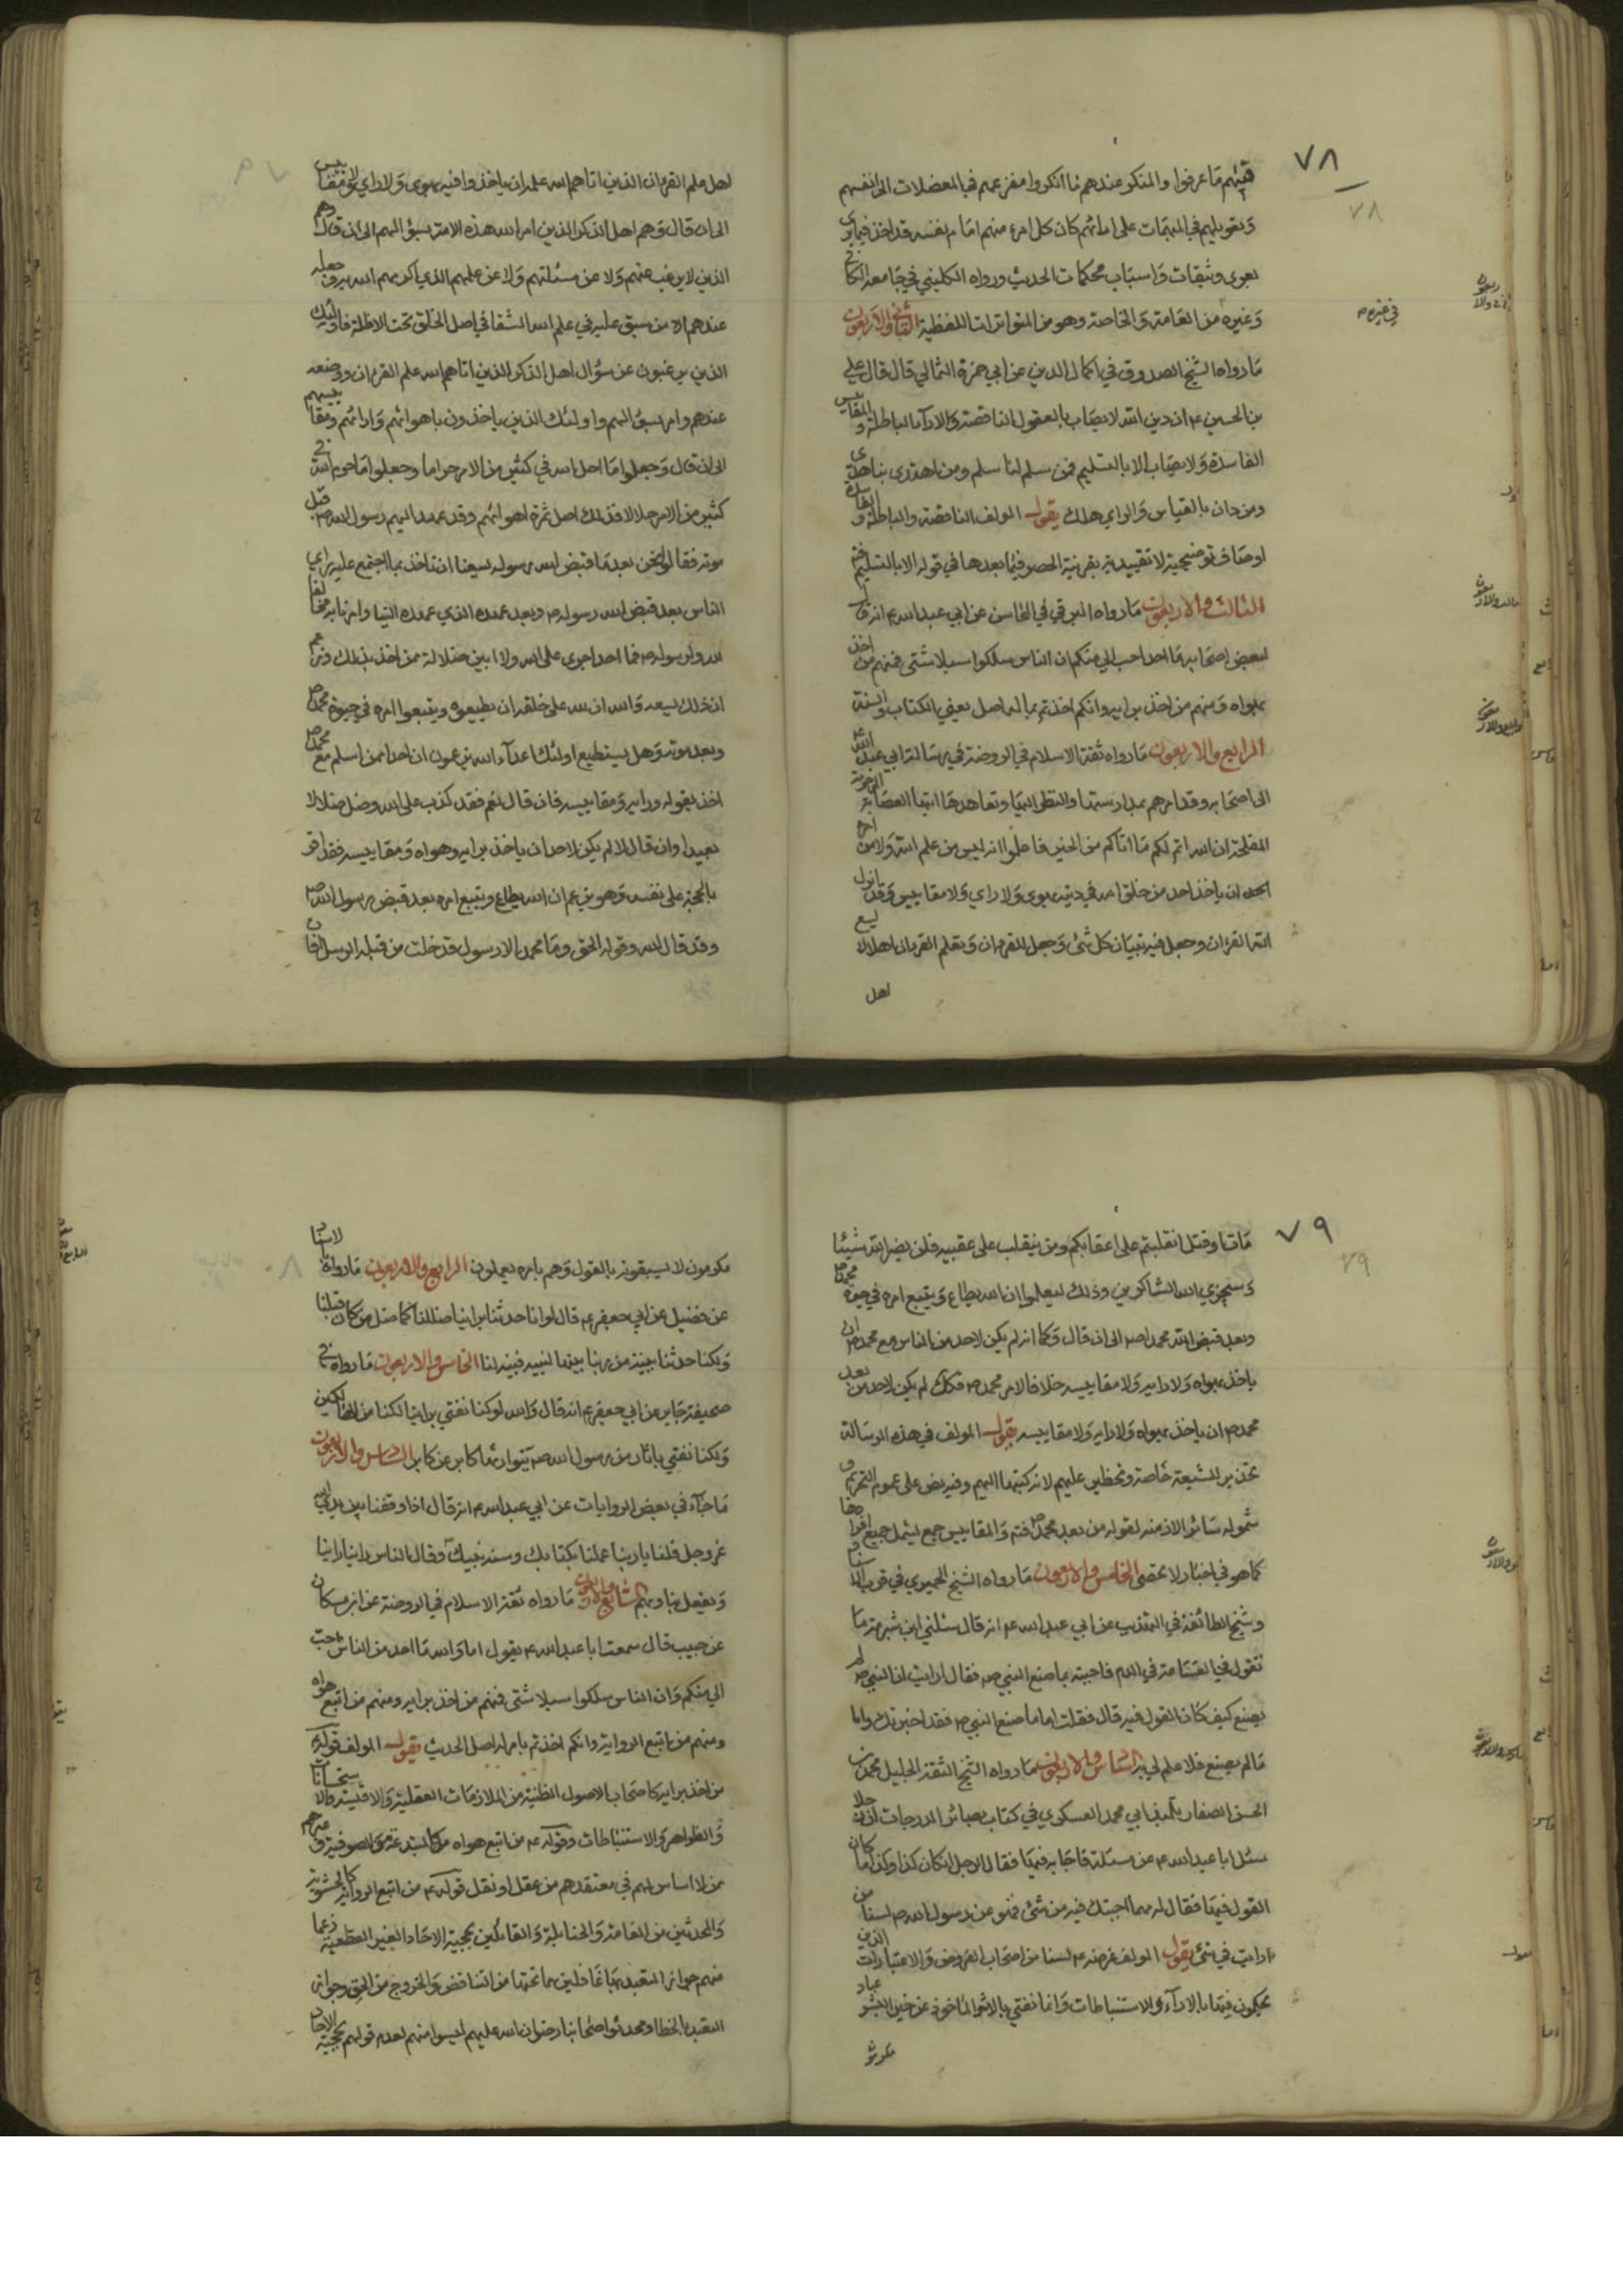 ٧٨
٧٨
فيهم ما عرفوا والمنكر عندهم ما انكروا مفزعهم في المعضلات الى انفسهم
وتعويلهم في المبهمات على ارائهم كان كل امرء منهم امام نفسه قد اخذ فيما يرى
بعرى وثيقات واسباب محكمات الحديث ورواه الكليني في جامعه الكافي
وغيره من العامة والخاصة وهو من المتواترات اللفظية الثاني والاربعون
في غيره
ما رواه الشيخ الصدوق في اكمال الدين عن ابي حمزة الثمالي قال قال علي
بن الحسين ع ان دين الله لا يصاب بالعقول الناقصة والاراء الباطلة والمقاييس
الفاسدة ولا يصاب الا بالتسليم فمن سلم لنا سلم ومن اهتدى بنا هدى
ومن دان بالقياس والراي هلك يقول المولف الناقصة والباطلة والفاسدة
اوصاف توضيحية لا تقييدية بقرينة الحصر فيما بعدها في قوله الا بالتسليم
الثالث والاربعون ما رواه البرقي في المحاسن عن ابي عبد الله ع انه قال
لبعض اصحابه ما احد احب الي منكم ان الناس سلكوا سبلا شتى فمنهم من اخذ
بهواه ومنهم من اخذ برايه وانكم اخذتم بما له اصل يعني الكتاب والسنة
الرابع والاربعون ما رواه ثقة الاسلام في الروضة في رسالة ابي عبد الله ع
الى اصحابه وقد امرهم بمدارستها والنظر اليها وتعاهدها ايتها العصابة المرحومة
المفلحة ان الله اتم لكم ما اتاكم من الخير فاعلموا انه ليس من علم الله ولا من امره
ان ياخذ احد من خلق الله في دينه بهوى ولا راي ولا مقاييس وقد انزل
الله القرءان وجعل فيه تبيان كل شئ وجعل للقرءان وتعلم القرءان اهلا لا يسع
اهل
اهل علم القرءان الذين اتاهم الله علمه ان ياخذوا فيه بهوى ولا راي ولا مقاييس
الى ان قال وهم اهل الذكر الذين امر الله هذه الامة بسؤالهم الى ان قال وهم
الذين لا يرغب عنهم ولا عن مسئلتهم ولا عن علمهم الذي اكرمهم الله به وجعله
عندهم الا من سبق عليه في علم الله الشقا في اصل الخلق تحت الاظلة فاولئك
الذين يرغبون عن سؤال اهل الذكر الذين اتاهم الله علم القرءان ووضعه
عندهم وامر بسؤالهم واولئك الذين ياخذون باهوائهم وارائهم ومقاييسهم
الى ان قال وجعلوا ما احل الله في كثير من الامر حراما وجعلوا ما حرم الله في
كثير من الامر حلالا فذلك اصل ثمرة اهوائهم وقد عهد اليهم رسول الله ص قبل
موته فقالوا نحن بعد ما قبض الله رسوله يسعنا ان ناخذ بما اجتمع عليه راي
الناس بعد قبض الله رسوله ص وبعد عهده الذي عهده الينا وامرنا به مخالفا
لله ولرسوله ص فما احد اجرى على الله ولا ابين ضلالة ممن اخذ بذلك وزعم
ان ذلك يسعه والله ان لله على خلقه ان يطيعوه ويتبعوا امره في حيوة محمد ص
وبعد موته وهل يستطيع اولئك اعداء الله يزعمون ان احدا ممن اسلم مع محمد ص
اخذ بقوله ورايه ومقاييسه فان قال نعم فقد كذب على الله وضل ضلالا
بعيدا وان قال لا لم يكن لاحد ان ياخذ برايه وهواه ومقاييسه فقد اقر
بالحجة على نفسه وهو يزعم ان الله يطاع ويتبع امره بعد قبض رسول الله ص
وقد قال الله وقوله الحق وما محمد الا رسول قد خلت من قبله الرسل افان
٧٩
٧٩
مات او قتل انقلبتم على اعقابكم ومن ينقلب على عقبيه فلن يضر الله شيئا
وسيجزي الله الشاكرين وذلك ليعلموا ان الله يطاع ويتبع امره في حيوة محمد ص
وبعد قبض الله محمدا ص الى ان قال وكما انه لم يكن لاحد من الناس مع محمد ص ان
ياخذ بهواه ولا رايه ولا مقاييسه خلافا لامر محمد ص فكذلك لم يكن لاحد من بعد
محمد ص ان ياخذ بهواه ولا رايه ولا مقاييسه يقول المولف في هذه الرسالة
تحذير للشيعة خاصة وتحظير عليهم لانه كتبها اليهم وفيه نص على عموم التحريم و
شموله سائر الازمنه لقوله من بعد محمد ص فتم والمقاييس جمع يشمل جميع افرادها
كما هو في اخبار لا تحصى الخامس والاربعون ما رواه الشيخ الحميري في قرب الاسناد
وشيخ الطائفة في التهذيب عن ابي عبد الله ع انه قال سئلني ابن شبرمة ما
تقول في القسامة في الدم فاجبته بما صنع النبي ص فقال ارايت لو ان النبي ص لم
يصنع كيف كان القول فيه قال فقلت له اما ما صنع النبي ص فقد اخبرتك واما
ما لم يصنع فلا علم لي به السادس والاربعون ما رواه الشيخ الثقة الجليل محمد بن
الحسن الصفار تلميذ ابي محمد العسكري في كتاب بصائر الدرجات ان رجلا
سئل ابا عبد الله ع عن مسئلة فاجابه فيها فقال الرجل ان كان كذا وكذا ما كان
القول فيها فقال له مهما اجبتك فيه من شئ فهو عن رسول الله ص لسنا من
ارايت في شئ يقول المولف غرضه ع لسنا من اصحاب الفروض والاعتبارات الذين
يحكمون فيها بالاراء والاستنباطات وانما نفتي بالاثر الماخوذ عن خير البشر عباد
مكرمون
مكرمون لا يسبقونه بالقول وهم بامره يعملون الرابع والاربعون ما رواه بالاسناد
عن فضيل عن ابي جعفر ع قال لو انا حدثنا براينا ضللنا كما ضل من كان قبلنا
ولكنا حدثنا ببينة من ربنا بينها لنبيه فبينه لنا الخامس والاربعون ما رواه في
صحيفة جابر عن ابي جعفر ع انه قال والله لو كنا نفتي براينا لكنا من الهالكين
ولكنا نفتي باثار من رسول الله ص يتوارثها كابر عن كابر السادس والاربعون
ما جاء في بعض الروايات عن ابي عبد الله ع انه قال اذا وقفنا بين يدي الله
عز وجل قلنا يا ربنا عملنا بكتابك وسنة نبيك وقال الناس راينا راينا
ويفعل بنا وبهم السابع والاربعون ما رواه ثقة الاسلام في الروضة عن ابن مسكان
عن حبيب قال سمعت ابا عبد الله ع يقول اما والله ما احد من الناس احب
الي منكم وان الناس سلكوا سبلا شتى فمنهم من اخذ برايه ومنهم من اتبع هواه
ومنهم من اتبع الرواية وانكم اخذتم بامر له اصل الحديث يقول المولف قوله ع
من اخذ برايه كاصحاب الاصول الظنية من الملازمات العقلية والاقيسة والاستحسانات
والظواهر والاستنباطات وقوله ع من اتبع هواه كالمبتدعة من الصوفية وغيرهم
ممن لا اساس لهم في معتقدهم من عقل او نقل قوله ع من اتبع الرواية كالحشوية
والمحدثين من العامة والحنابلة والقائلين بحجية الاحاد الغير القطعية زعما
منهم جواز التعبد بها غافلين عما تحتها من التناقض والخروج من الحق وجواز
التعبد بالخطا ومحدثوا اصحابنا رضوان الله عليهم ليسوا منهم لعدم قولهم بحجية الاحاد